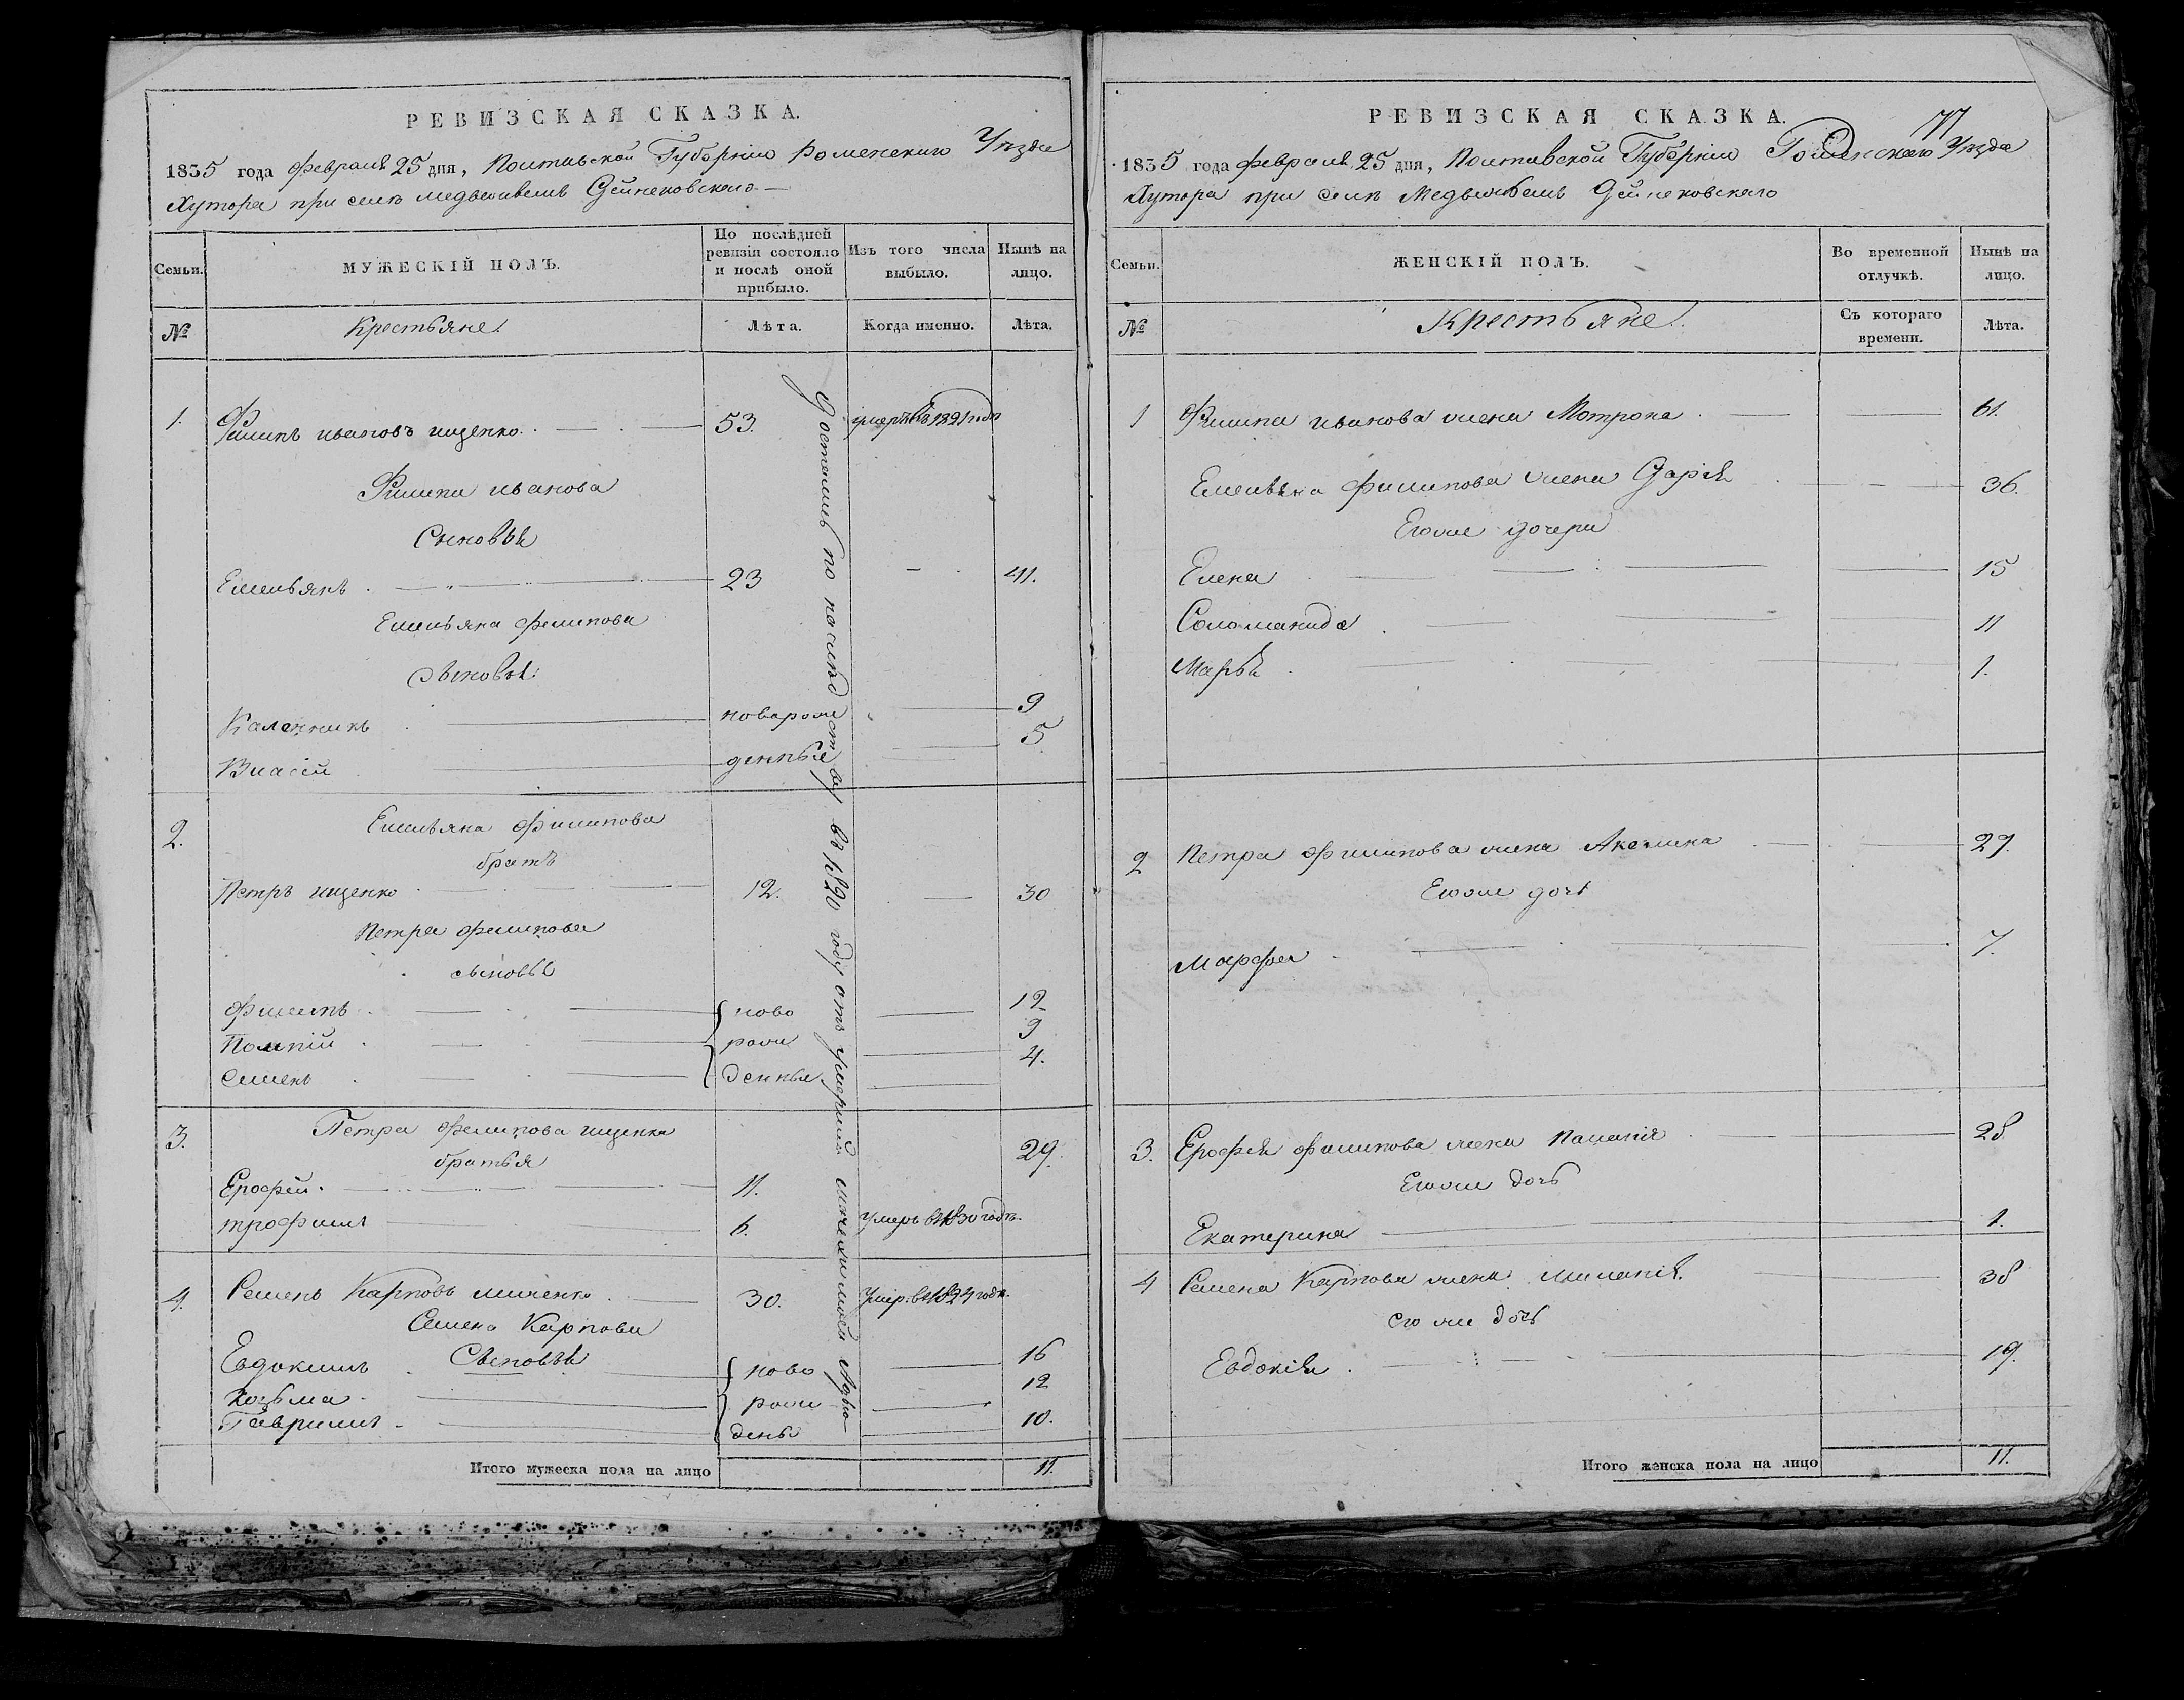 РЕВИЗСКАЯ СКАЗКА.
1835 года февраля 25 дня, Полтавской Губерніи Роменского Уѣзда
Хутора при селѣ Медвежьемъ Дейнековского
Семьи.
МУЖЕСКІЙ ПОЛЪ.
По послѣдней ревизіи состояло и послѣ оной прибыло.
Изъ того числа выбыло.
Нынѣ на лицо.
№
Крестьяне
Лѣта.
Когда именно.
Лѣта.
1. Филипъ ивановъ ищенко 53. умеръ въ 1821 годѣ
Филипа иванова
Сыновья
Емельянъ 23 41.
Емельяна филипова
сыновья
Каленникъ новорож 9
Власій денныя 5
2. Емельяна филипова
братъ
Петръ ищенко 12. 30
Петра филипова
сыновья
Филипъ ново 12
рож 9
Семенъ денныя 4.
3. Петра филипова ищенка
братья 29.
Ерофей 11.
трофимъ 6. умеръ в 1830 годѣ.
4. Семенъ Карповъ 30. умер. в 1824 годѣ.
Семена Карпова
Сыновья
Евдокимъ ново 16
Козьма рож 12
Гаврило 10.
Достались по наследству в 1820 году отъ умершей
Итого мужеска пола на лицо 11.
РЕВИЗСКАЯ СКАЗКА.
1835 года февраля 25 дня, Полтавской Губерніи Роменского Уѣзда
Хутора при селѣ Медвежьемъ Дейнековского
Семьи.
ЖЕНСКІЙ ПОЛЪ.
Во временной отлучкѣ.
Нынѣ на лицо.
№
Крестьяне
Съ котораго времени.
Лѣта.
1 Филипа иванова жена Мотрона 61.
Емельяна филипова жена Дарія 36.
Его же дочери
Елена 15
Соломанида 11
Марья 1.
2 Петра филипова жена Акелина 29.
Его же дочь
Марфа 7.
3. Ерофея филипова жена 28
Его же дочь
Екатерина 1.
4 Семена Карпова жена 38
его же дочь
Евдокія 19.
Итого женска пола на лицо 11.